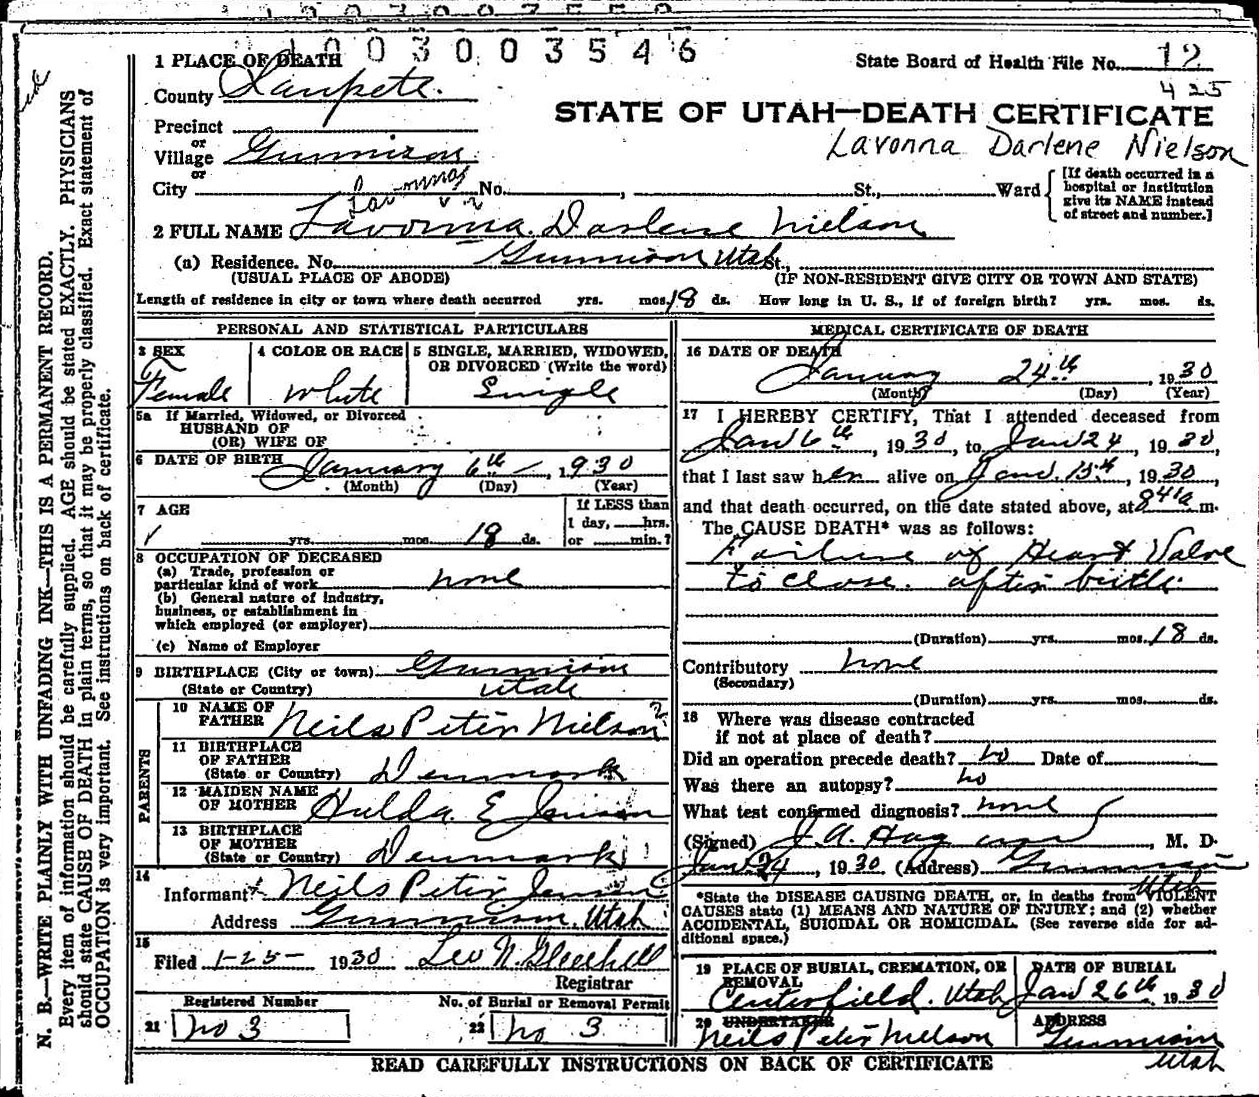 1003003546
1 PLACE OF DEATH
State Board of Health File No. 12
425
County Sanpete.
STATE OF UTAH—DEATH CERTIFICATE
Precinct
or
Lavonna Darlene Nielson
Village Gunnison
or
City No. , St., Ward
[If death occurred in a
hospital or institution
give its NAME instead
of street and number.]
2 FULL NAME Lavonna Darlene Nielson
(a) Residence. No. Gunnison Utah St.,
(USUAL PLACE OF ABODE) (IF NON-RESIDENT GIVE CITY OR TOWN AND STATE)
Length of residence in city or town where death occurred yrs. mos. 18 ds. How long in U. S., if of foreign birth? yrs. mos. ds.
PERSONAL AND STATISTICAL PARTICULARS
3 SEX
Female
4 COLOR OR RACE
White
5 SINGLE, MARRIED, WIDOWED,
OR DIVORCED (Write the word)
Single
5a If Married, Widowed, or Divorced
HUSBAND OF
(OR) WIFE OF
6 DATE OF BIRTH January 6th , 1930
(Month) (Day) (Year)
7 AGE
yrs. mos. 18 ds.
If LESS than
1 day, hrs.
or min.?
8 OCCUPATION OF DECEASED
(a) Trade, profession or
particular kind of work none
(b) General nature of industry,
business, or establishment in
which employed (or employer)
(c) Name of Employer
9 BIRTHPLACE (City or town) Gunnison
(State or Country) Utah
PARENTS
10 NAME OF
FATHER Neils Peter Nielson
11 BIRTHPLACE
OF FATHER
(State or Country) Denmark
12 MAIDEN NAME
OF MOTHER Hulda E Jensen
13 BIRTHPLACE
OF MOTHER
(State or Country) Denmark
14
Informant Neils Peter
Address Gunnison, Utah
15
Filed 1-25- 1930 Leo N. Gledhill
Registrar
Registered Number
21 no 3
No. of Burial or Removal Permit
22 no 3
MEDICAL CERTIFICATE OF DEATH
16 DATE OF DEATH
January 24th , 1930
(Month) (Day) (Year)
17 I HEREBY CERTIFY, That I attended deceased from
Jan 6th , 1930, to Jan 24 , 1930,
that I last saw her alive on Jan. 15th, 1930,
and that death occurred, on the date stated above, at 841a m.
The CAUSE DEATH* was as follows:
Failure of Heart Valve
to close. after birth.
(Duration) yrs. mos. 18 ds.
Contributory none
(Secondary)
(Duration) yrs. mos. ds.
18 Where was disease contracted
if not at place of death?
Did an operation precede death? no Date of
Was there an autopsy? no
What test confirmed diagnosis? none
(Signed) J. A. Hagan , M. D.
Jan. 24 , 1930 (Address) Gunnison
Utah
*State the DISEASE CAUSING DEATH, or, in deaths from VIOLENT
CAUSES state (1) MEANS AND NATURE OF INJURY; and (2) whether
ACCIDENTAL, SUICIDAL OR HOMICIDAL. (See reverse side for ad-
ditional space.)
19 PLACE OF BURIAL, CREMATION, OR
REMOVAL
Centerfield. Utah
DATE OF BURIAL
Jan 26th, 1930
20 UNDERTAKER
Neils Peter Nielson
ADDRESS
Gunnison
Utah
READ CAREFULLY INSTRUCTIONS ON BACK OF CERTIFICATE
N. B.—WRITE PLAINLY WITH UNFADING INK—THIS IS A PERMANENT RECORD.
Every item of information should be carefully supplied. AGE should be stated EXACTLY. PHYSICIANS
should state CAUSE OF DEATH in plain terms, so that it may be properly classified. Exact statement of
OCCUPATION is very important. See instructions on back of certificate.